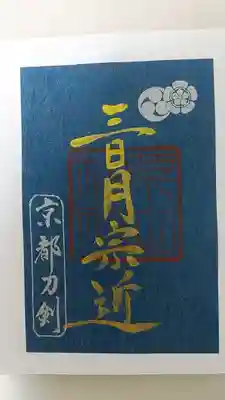 三日月宗近
京都刀剣